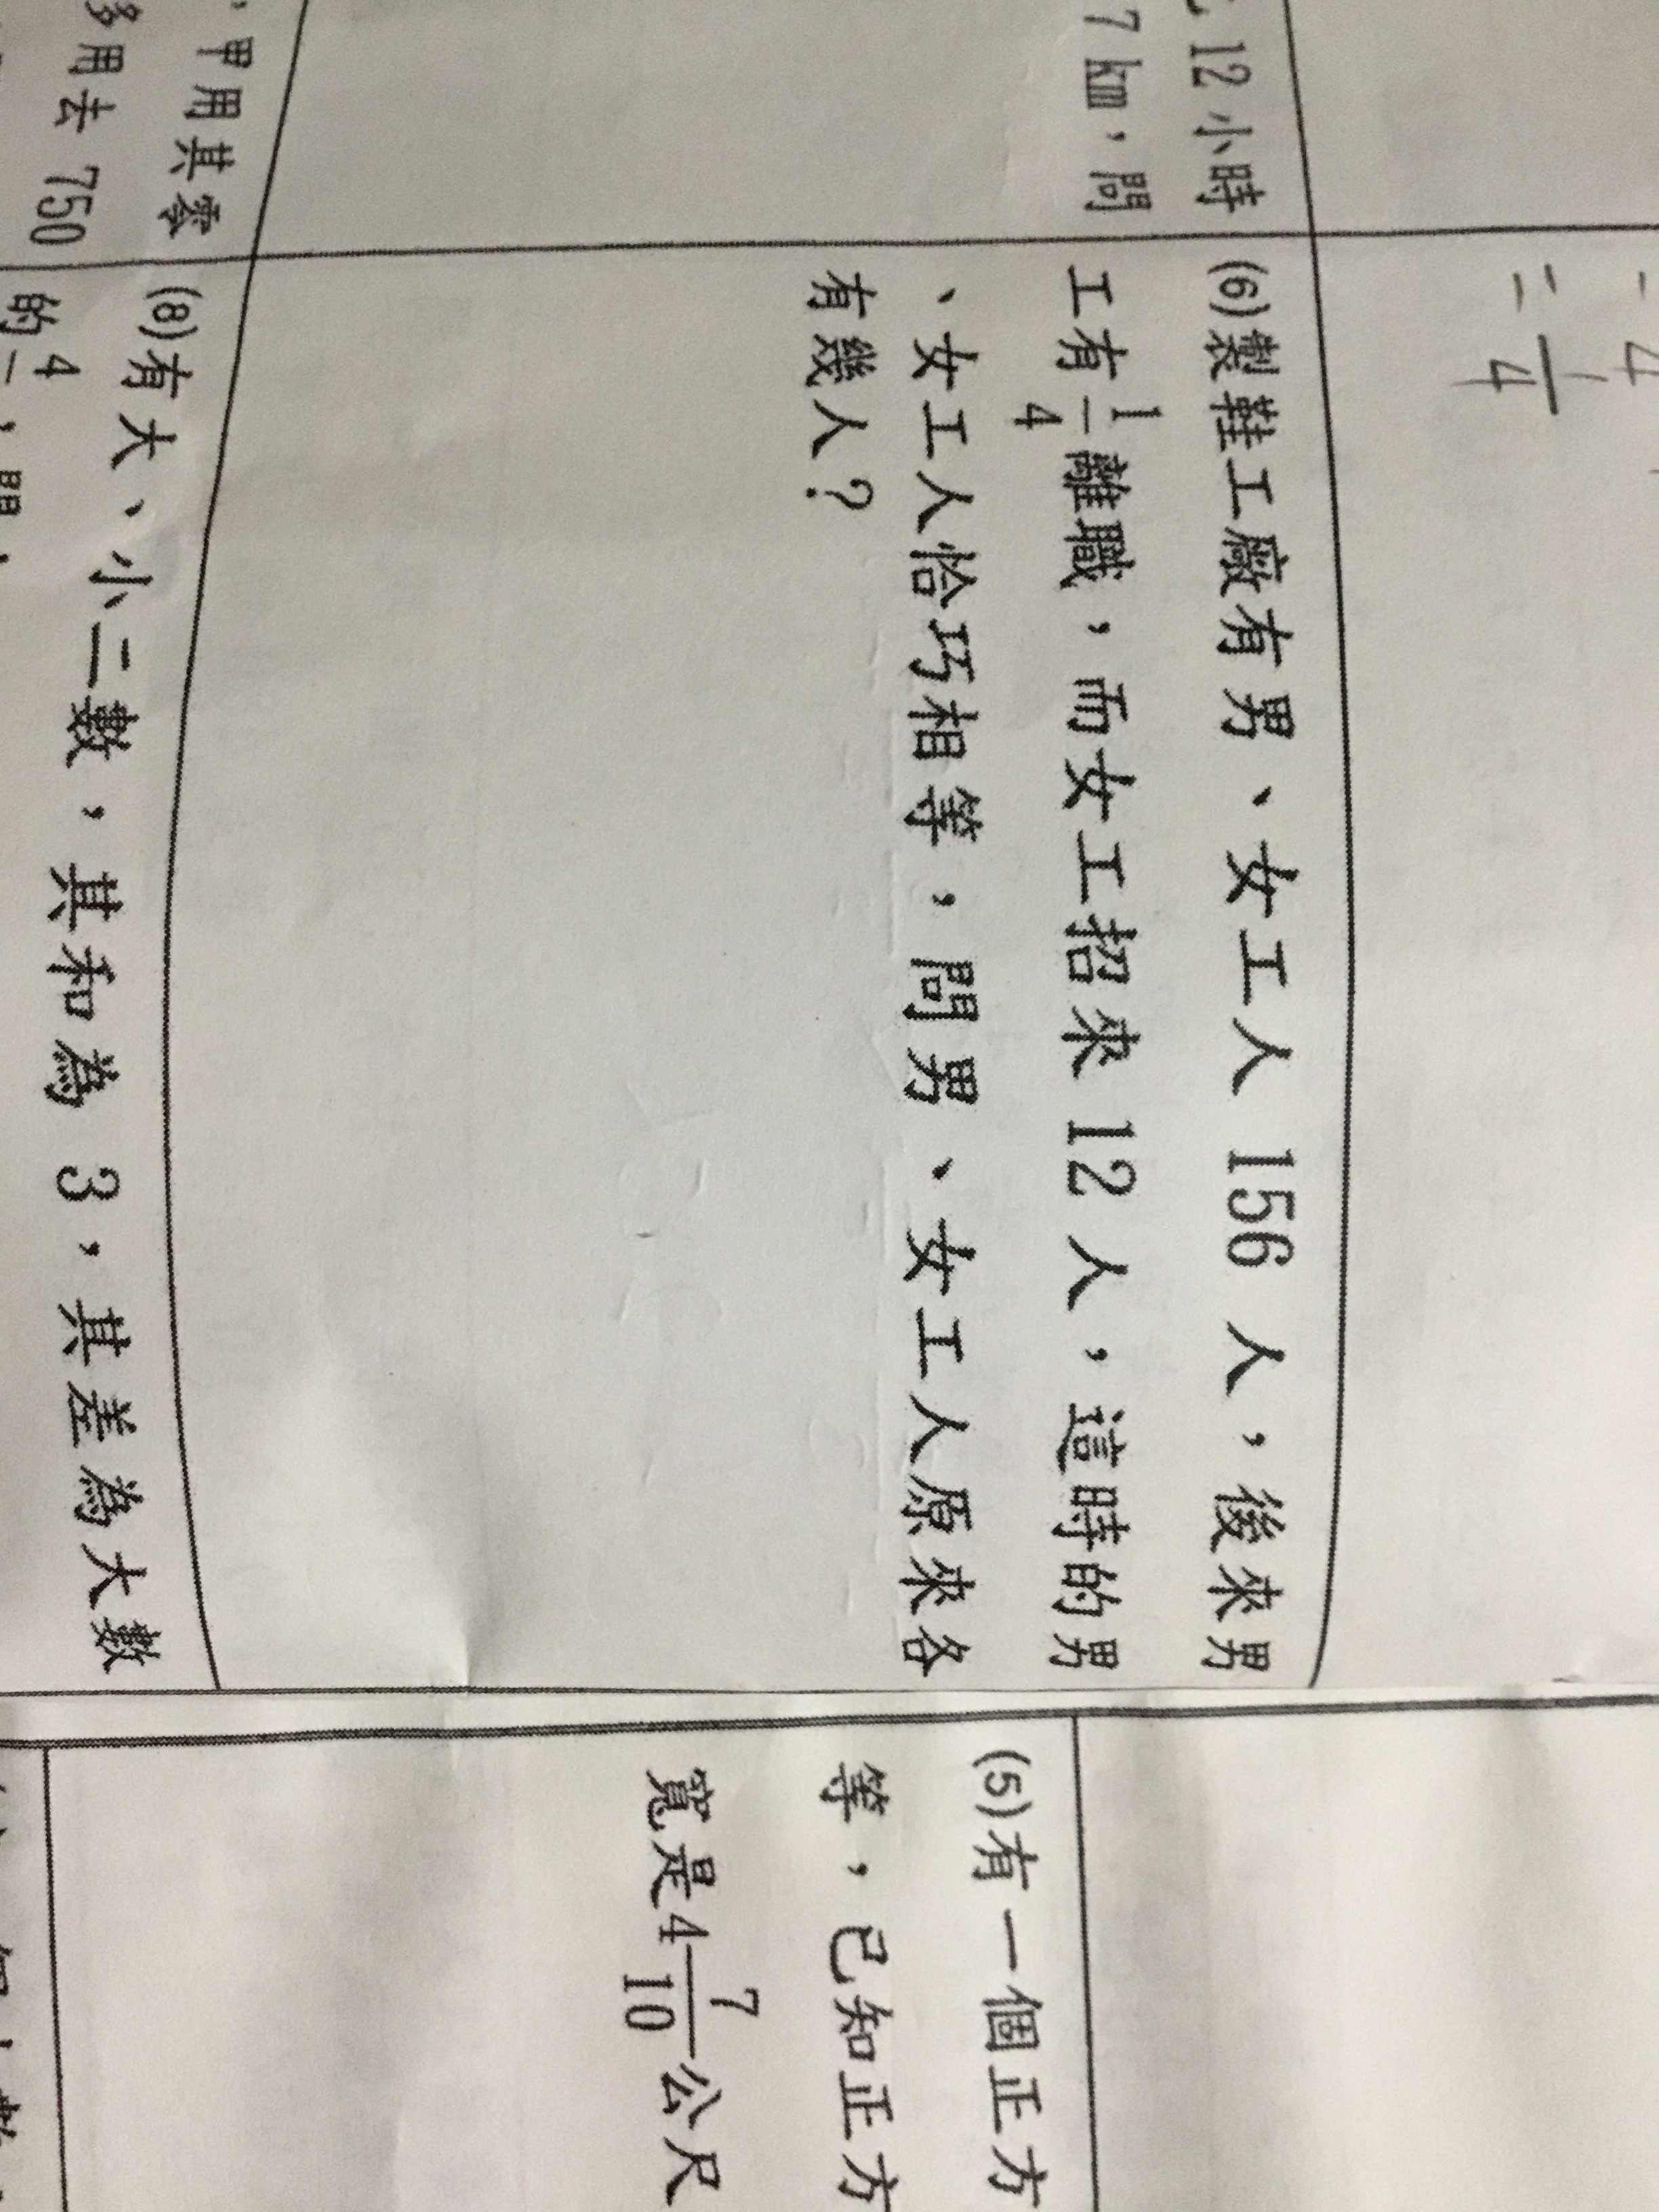 12 小時
7 km，問
(6)製鞋工廠有男、女工人 156 人，後來男
工有1/4離職，而女工招來 12 人，這時的男
、女工人恰巧相等，問男、女工人原來各
有幾人？
，甲用其零
多用去 750
(8)有大、小二數，其和為 3，其差為大數
的4
= 1/4
(5)有一個正方
等，已知正方
寬是4 7/10公尺